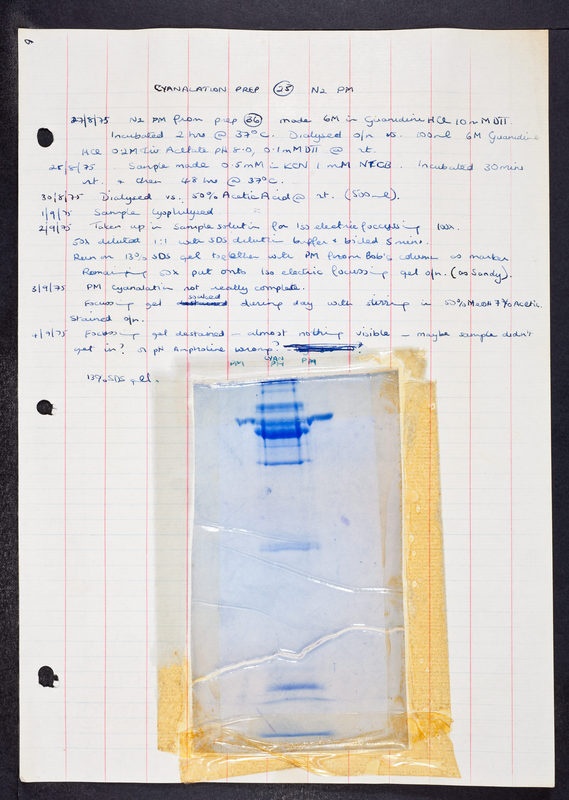 CYANALATION PREP 25 N2 PM
27/8/75 N2 PM from prep 26 made 6M in Guanidine HCl 10mM DTT.
Incubated 2 hrs @ 37°C. Dialysed o/n vs. 100ml 6M Guanidine
HCl 0.2M Tris Acetate pH 8.0, 0.1mM DTT @ rt.
28/8/75 Sample made 0.5mM in KCN 1mM NTCB. Incubated 30mins
rt. + then 48 hrs @ 37°C.
30/8/75 Dialysed vs. 50% Acetic Acid @ rt. (500ml).
1/9/75 Sample lyophilysed
2/9/75 Taken up in Sample solution for Iso electric focussing 100λ.
50λ diluted 1:1 with SDS dilution buffer + boiled 5 mins.
Run on 13% SDS gel together with PM from Bob's column as marker
Remaining 50λ put onto Iso electric focussing gel o/n. (as Sandy).
3/9/75 PM Cyanalation not really complete.
Focussing gel soaked during day with stirring in 50% MeOH 7% Acetic.
Stained o/n.
4/9/75 Focussing gel destained - almost nothing visible - maybe sample didn't
get in? or pH Ampholine wrong?
PM CYAN PM PM
13% SDS gel.